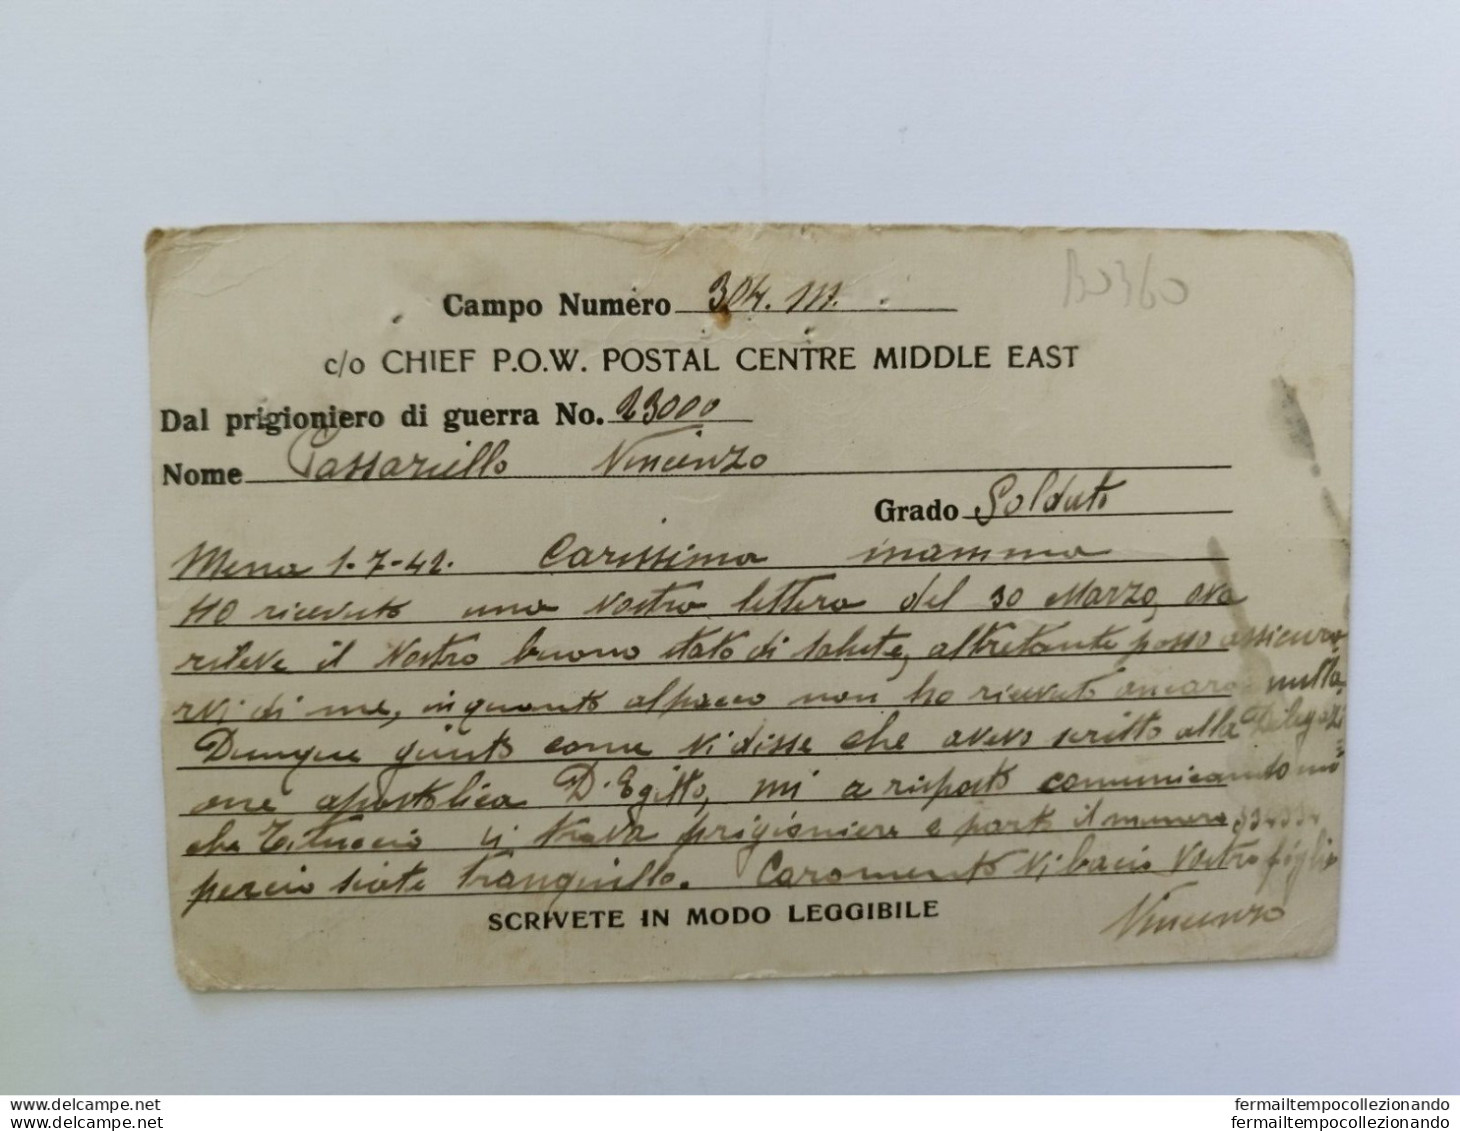 B0360
Campo Numero 304. M.
c/o CHIEF P.O.W. POSTAL CENTRE MIDDLE EAST
Dal prigioniero di guerra No. 23000
Nome Passariello Vincenzo
Grado Soldato
Mena 1-7-42. Carissima mamma
Ho ricevuto una vostra lettera del 30 Marzo, ove
rileve il vostro buono stato di salute, altretante posso assicura
rvi di me, in quanto al pacco non ho ricevuto ancora nulla.
Dunque giusto come vi disse che avevo scritto alla Delegazi
one apostolica D'Egitto, mi a risposto comunicandomi
che si trova prigioniere e porto il numero
percio siate tranquilla. Caramente vi bacio vostro figlio
SCRIVETE IN MODO LEGGIBILE
Vincenzo
fermailtempocollezionando
fermailtempocollezionando
www.delcampe.net
www.delcampe.net